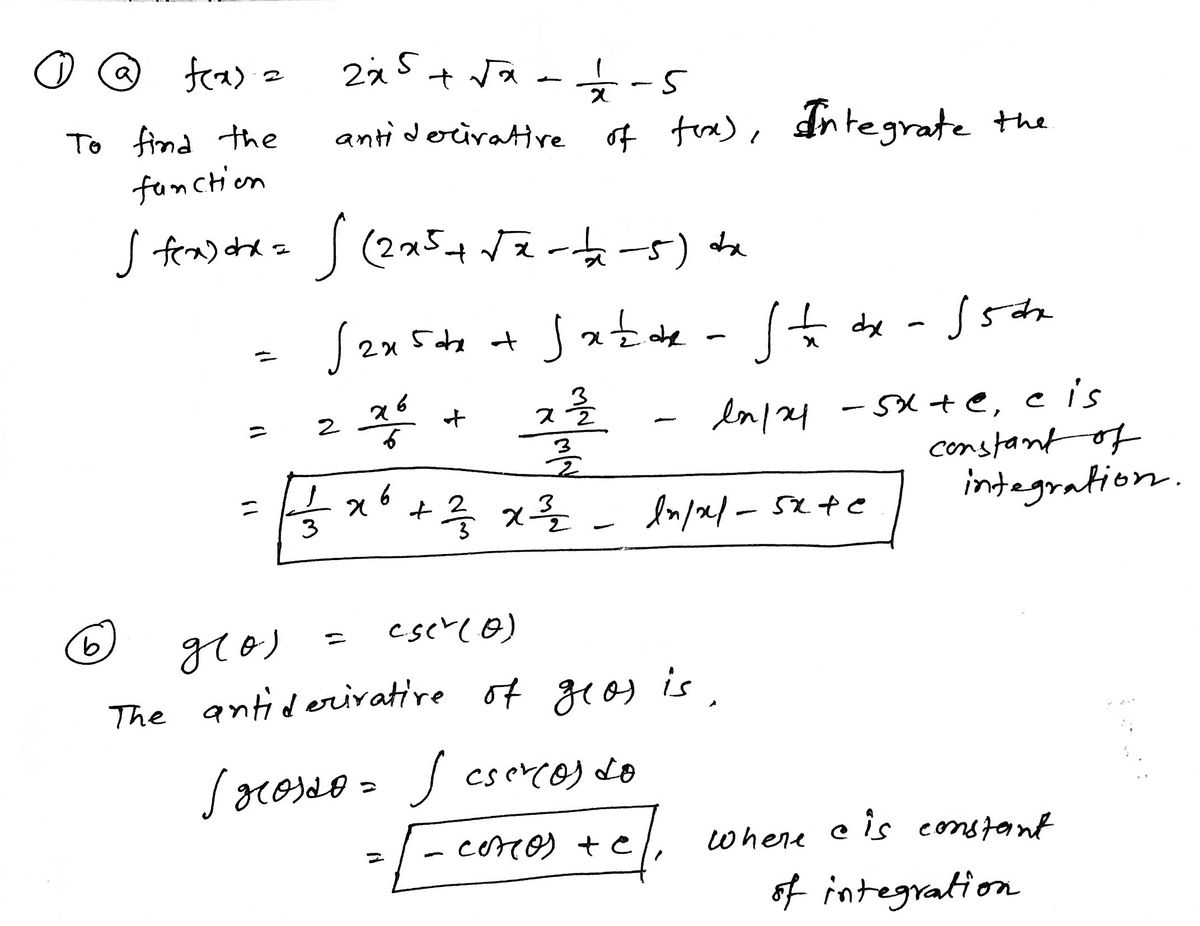 ① ⓐ f(x) = 2x⁵ + √x - 1/x - 5
To find the antiderivative of f(x), Integrate the
function
∫ f(x) dx = ∫ (2x⁵ + √x - 1/x - 5) dx
= ∫ 2x⁵ dx + ∫ x^(1/2) dx - ∫ 1/x dx - ∫ 5 dx
= 2 x⁶/6 + x^(3/2)/(3/2) - ln|x| - 5x + c, c is
constant of
integration.
= 1/3 x⁶ + 2/3 x^(3/2) - ln|x| - 5x + c
ⓑ g(θ) = csc²(θ)
The antiderivative of g(θ) is,
∫ g(θ) dθ = ∫ csc²(θ) dθ
= - cot(θ) + c, where c is constant
of integration